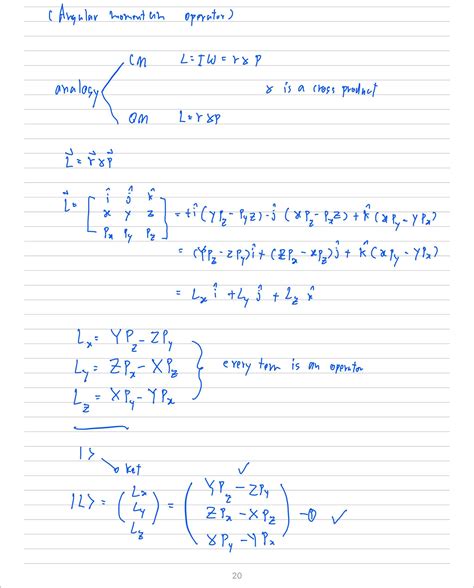 (Angular momentum operator)
analogy
CM L = IW = r x P
x is a cross product
QM L = r x P
L⃗ = r⃗ x P⃗
L⃗ = [ î ĵ k̂ ; x y z ; Px Py Pz ] = +î (YPz - PyZ) - ĵ (XPz - PxZ) + k̂ (XPy - YPx)
= (YPz - ZPy) î + (ZPx - XPz) ĵ + k̂ (XPy - YPx)
= Lx î + Ly ĵ + Lz k̂
Lx = YPz - ZPy
Ly = ZPx - XPz
Lz = XPy - YPx
every term is an operator
| >
ket
✓
|L> = ( Lx ; Ly ; Lz ) = ( YPz - ZPy ; ZPx - XPz ; XPy - YPx ) -① ✓
20